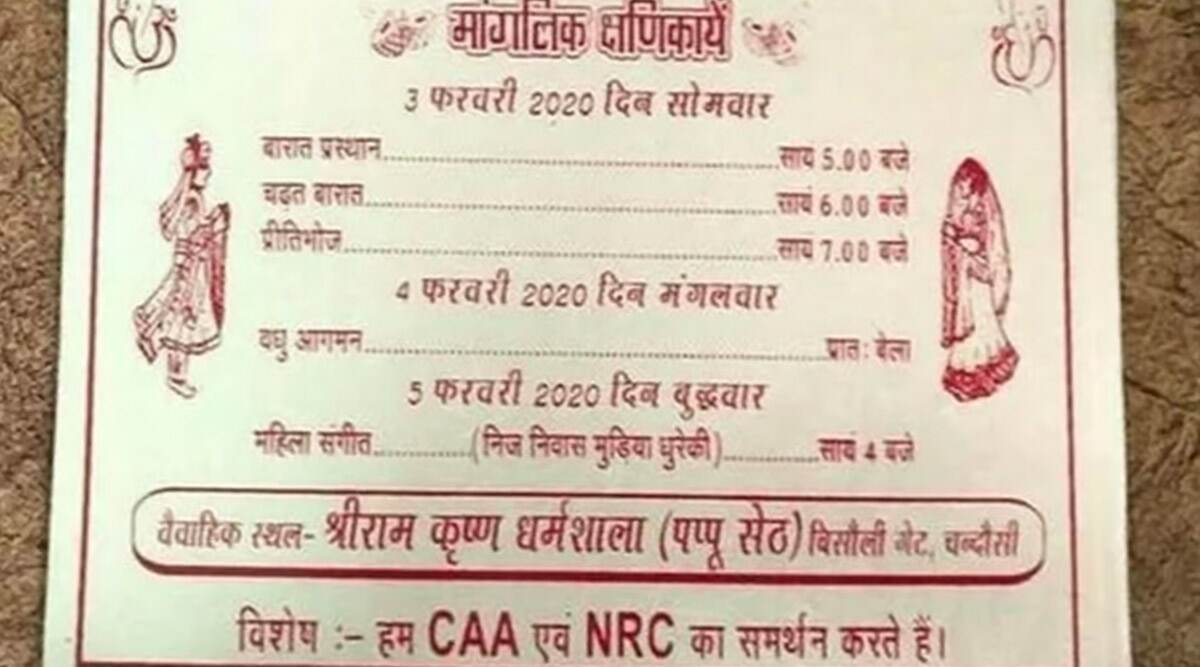 मांगलिक क्षणिकायें
3 फरवरी 2020 दिन सोमवार
बारात प्रस्थान.......................................................सायं 5.00 बजे
चढ़त बारात.........................................................सायं 6.00 बजे
प्रीतिभोज............................................................सायं 7.00 बजे
4 फरवरी 2020 दिन मंगलवार
वधु आगमन...............................................................प्रातः बेला
5 फरवरी 2020 दिन बुद्धवार
महिला संगीत..............(निज निवास मुडिया धुरेकी)..............सायं 4 बजे
वैवाहिक स्थल- श्रीराम कृष्ण धर्मशाला (पप्पू सेठ) बिसौली गेट, चन्दौसी
विशेष :- हम CAA एवं NRC का समर्थन करते हैं।